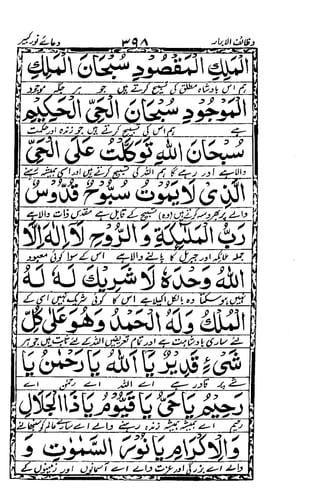 وظائف الابرار ٣٩٨ دعائے نور کبیر
الْمَلِكِ الْمَقْصُودِ سُبْحَانَ الْمَلِكِ
ہم اس بادشاہ مطلق کی تسبیح کرتے ہیں جو ہر جگہ موجود
الْمَوْجُودِ سُبْحَانَ الْحَيِّ الْحَكِيْمِ
ہے ہم اس کی تسبیح کرتے ہیں جو زندہ اور حکمت
سُبْحَانَ اللهِ تَوَكَّلْتُ عَلَى الْحَيِّ
والا ہے اور رہے گا ہم اللہ کی تسبیح کرتے ہیں اور اسی ہمیشہ رہنے
الَّذِىْ لَا يَمُوْتُ سُبُّوْحٌ قُدُّوْسٌ
والے پر بھروسہ کرتے ہیں (وہ) تسبیح کے قابل ہے مقدس ذات والا ہے
رَبُّ الْمَلٰٓئِكَةِ وَالرُّوْحِ لَا اِلٰهَ اِلَّا
جملہ ملائکہ اور جبریل کا پالنے والا ہے اس کے سوا کوئی معبود
اللهُ وَحْدَهٗ لَا شَرِيْكَ لَهٗ لَهُ
نہیں ہو سکتا وہ بالکل اکیلا ہے اس کا کوئی شریک نہیں اسی کے
الْمُلْكُ وَلَهُ الْحَمْدُ وَهُوَ عَلٰى كُلِّ
لئے ساری بادشاہت ہے اور تمام تعریفیں اللہ کے لئے ثابت ہیں اور وہ ہر
شَىْءٍ قَدِيْرٌ يَا اَللهُ يَا رَحْمٰنُ يَا
شے پر قادر ہے اے اللہ اے رحمٰن اے
رَحِيْمُ يَا حَىُّ يَا قَيُّوْمُ يَا ذَا الْجَلَالِ
رحیم اے ہمیشہ ہمیشہ زندہ رہنے والے اے سارے عالم کو سنبھالنے
وَالْاِكْرَامِ يَا نُوْرَ السَّمٰوٰتِ وَ
والے اے بزرگی اور عزت والے اے آسمانوں اور زمینوں کے